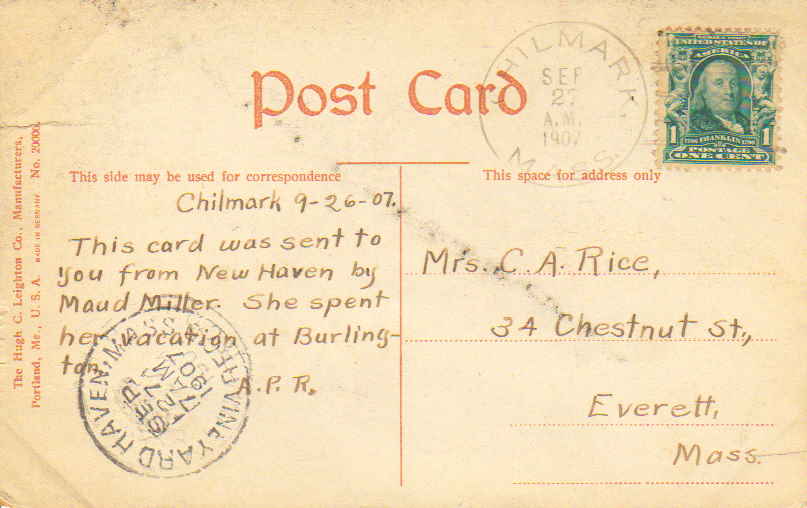 Post Card
CHILMARK,
MASS.
SEP
27
A.M.
1907
UNITED STATES OF
AMERICA
1 FRANKLIN 1
POSTAGE
ONE CENT
The Hugh C. Leighton Co., Manufacturers,
Portland, Me., U. S. A. MADE IN GERMANY No. 20000.
This side may be used for correspondence
This space for address only
Chilmark 9-26-07.
This card was sent to
you from New Haven by
Maud Miller. She spent
her vacation at Burling-
ton.
A.P.R.
VINEYARD HAVEN, MASS.
REC'D
SEP
27
7 AM
1907
Mrs. C. A. Rice,
34 Chestnut St.,
Everett,
Mass.